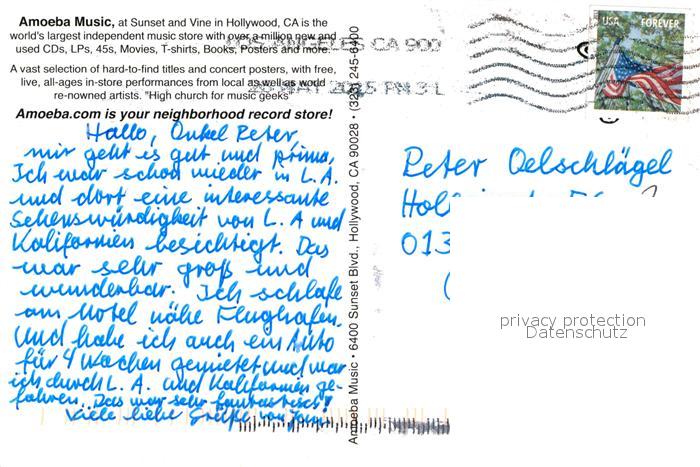 Amoeba Music, at Sunset and Vine in Hollywood, CA is the
world's largest independent music store with over a million new and
used CDs, LPs, 45s, Movies, T-shirts, Books, Posters and more.
A vast selection of hard-to-find titles and concert posters, with free,
live, all-ages in-store performances from local as well as world
re-nowned artists. "High church for music geeks"
Amoeba.com is your neighborhood record store!
Hallo, Onkel Peter
mir geht es gut und prima,
Ich war schon wieder in L.A.
und dort eine interessante
Sehenswürdigkeit von L.A und
Kalifornien besichtigt. Das
war sehr groß und
wunderbar. Ich schlafe
am Hotel nähe Flughafen.
Und habe ich auch ein Auto
für 4 Wochen gemietet und war
ich durch L.A. und Kalifornien ge-
fahren. Das war sehr fantastisch!
Viele liebe Grüße von
Amoeba Music • 6400 Sunset Blvd., Hollywood, CA 90028 • (323) 245-6400
CA 900
2015 PM 3 L
USA FOREVER
Peter Oelschlägel
013
privacy protection
Datenschutz